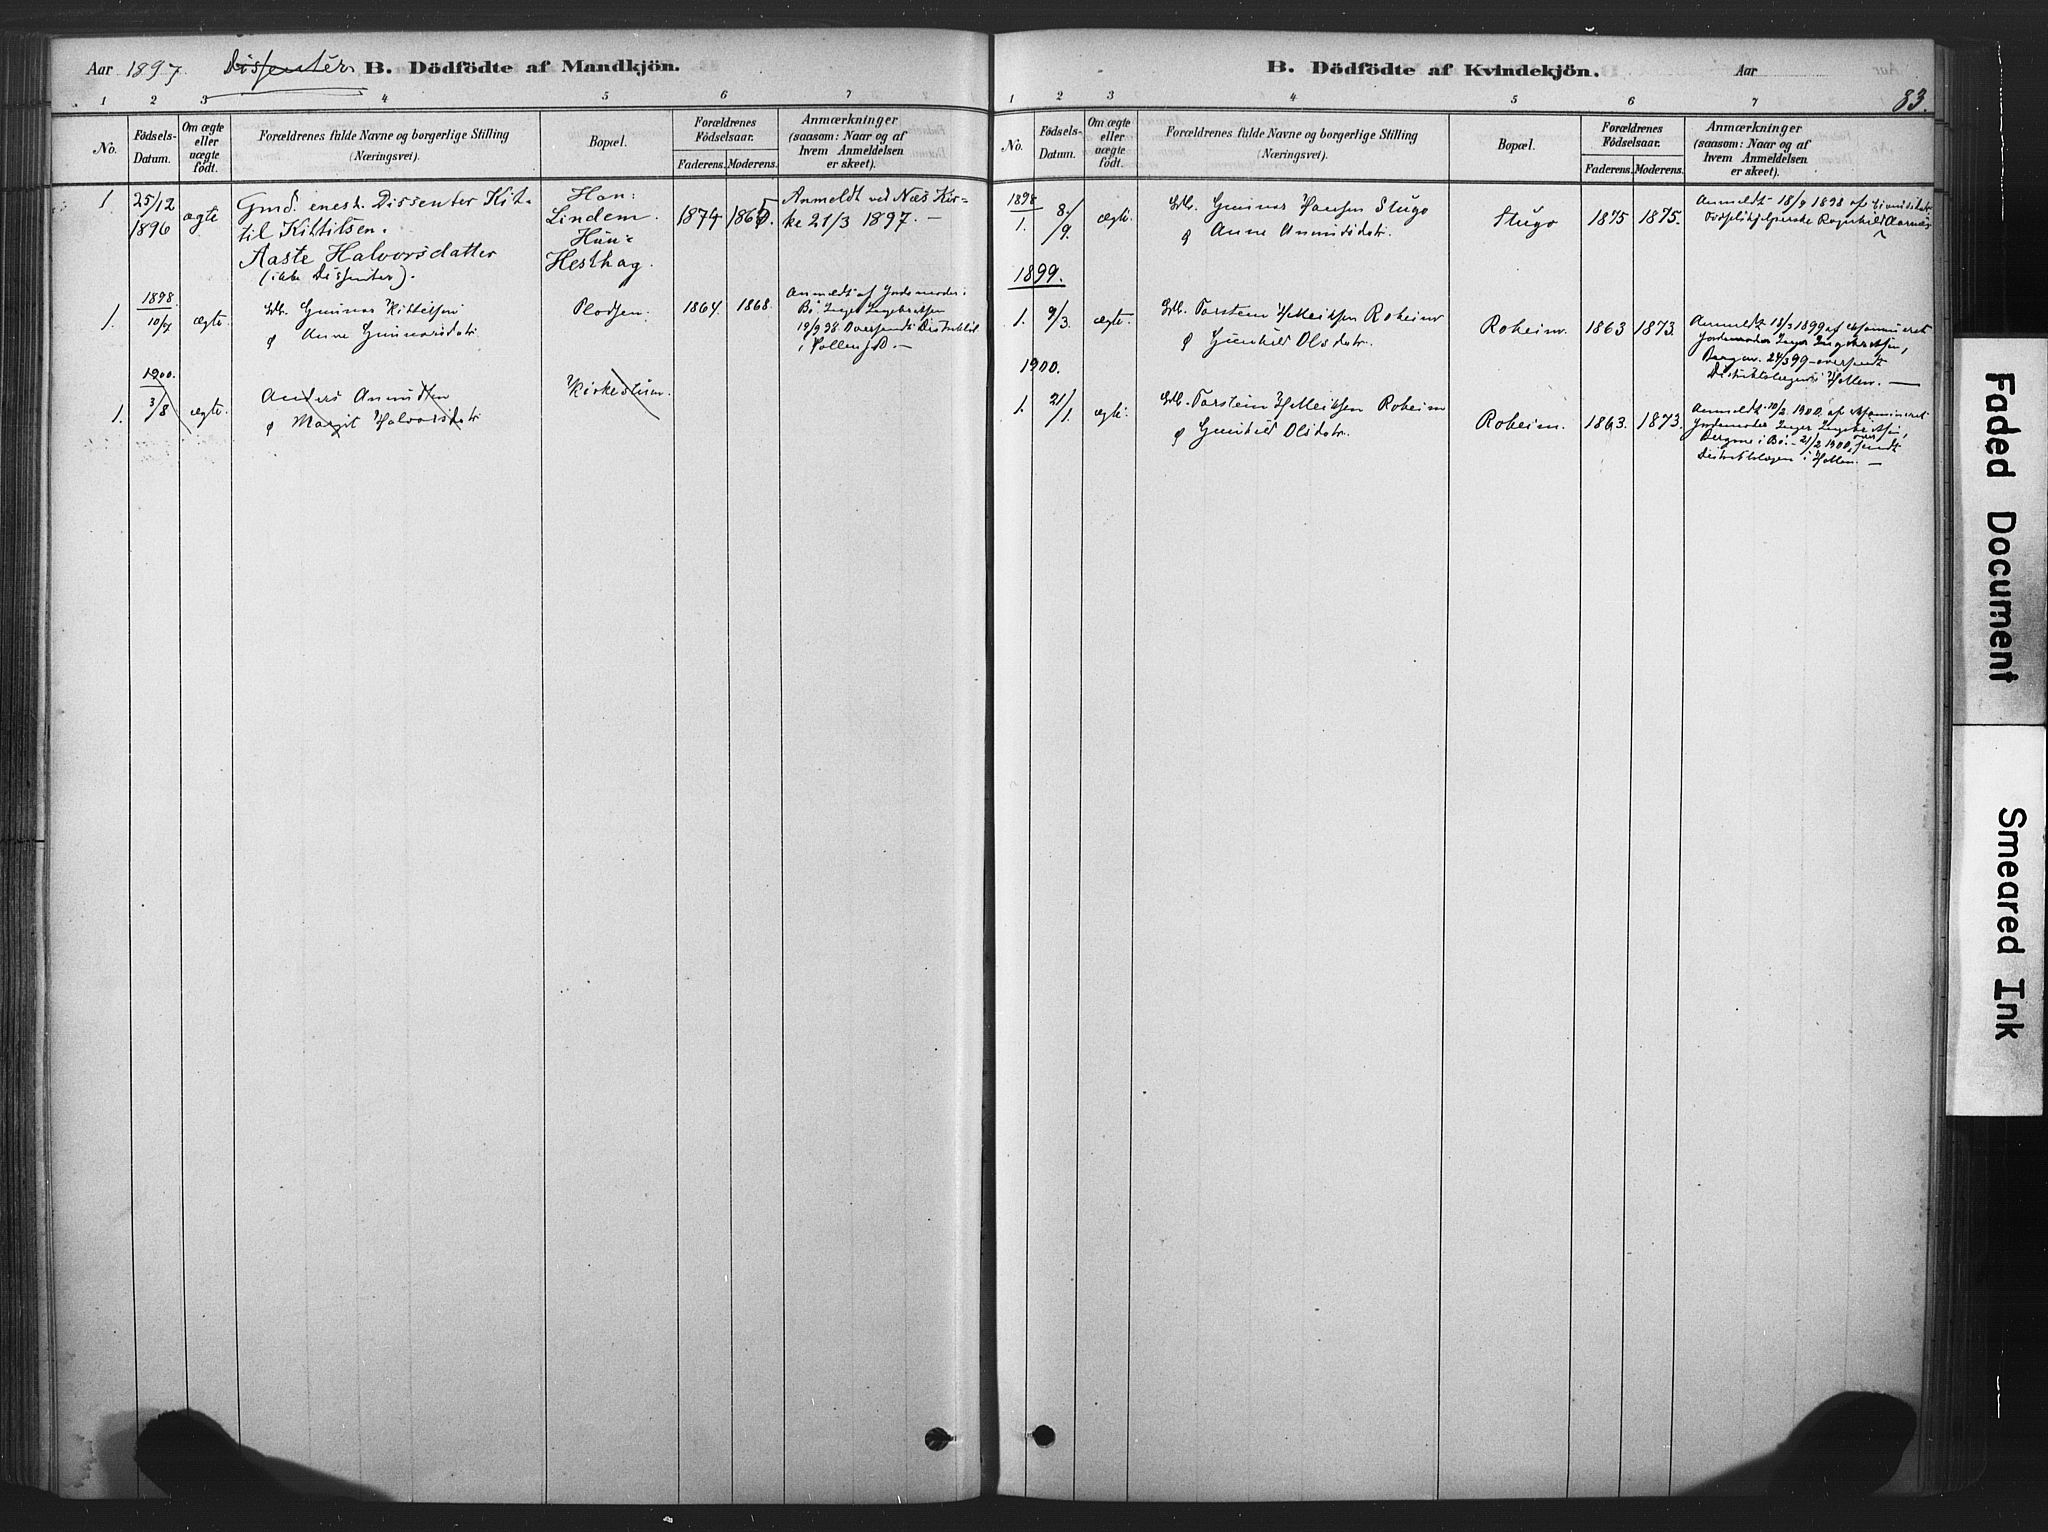 Aar 1897. Dissenter B. Dödfödte af Mandkjön.
1 2 3 4 5 6 7
No.
Födsels-
Datum.
Om ægte
eller
uægte
födt.
Forældrenes fulde Navne og borgerlige Stilling
(Næringsvei).
Bopæl.
Forældrenes
Födselsaar.
Faderens. Moderens.
Anmærkninger
(saasom: Naar og af
hvem Anmeldelsen
er skeet).
1. 25/12
1896 ægte
Gmd. enest. Dissenter Kit-
til Kittilsen.
Aaste Halvorsdatter
(ikke Dissenter).
Han:
Lindem.
Hun:
Hesthag.
1874 1865
Anmeldt ved Næs Kir-
ke 21/3 1897. —
1898
1. 10/9 ægte.
Gunnar Kittilsen
& Anne Gunnarsdatr.
1864 1868.
Anmeldt af Jordemoder i
Bö Inger Ingebretsen
19/9 98 Oversendt
1900.
1. 3/8 ægte.
Anders Anundsen
& Margit Halvorsdatr
Kirketun.
B. Dödfödte af Kvindekjön. Aar
83.
1 2 3 4 5 6 7
No.
Födsels-
Datum.
Om ægte
eller
uægte
födt.
Forældrenes fulde Navne og borgerlige Stilling
(Næringsvei).
Bopæl.
Forældrenes
Födselsaar.
Faderens. Moderens.
Anmærkninger
(saasom: Naar og af
hvem Anmeldelsen
er skeet).
1898
1. 8/9. ægte.
Gunnar Hansen Stugo
& Anne Anundsdatr.
Stugo
1875 1875.
Anmeldt 18/9 1898 af
Ragnhild Aarnes
1899.
1. 9/3. ægte.
Torstein Roheim
& Gunhild Olsdatr.
Roheim.
1863 1873.
Anmeldt 18/3 1899 af examineret
Jordemoder Inger Ingebretsen,
Bergan. 24/3 99 oversendt
Distriktslægen i Hollen. —
1900.
1. 21/1. ægte.
Torstein Roheim
& Gunhild Olsdatr.
Roheim.
1863. 1873.
Anmeldt 10/2 1900 af examineret
Jordemoder Inger Ingebretsen,
Bergan i Bö. – 21/2 1900 oversendt
Distriktslægen i Hollen. —
Faded Document
Smeared Ink